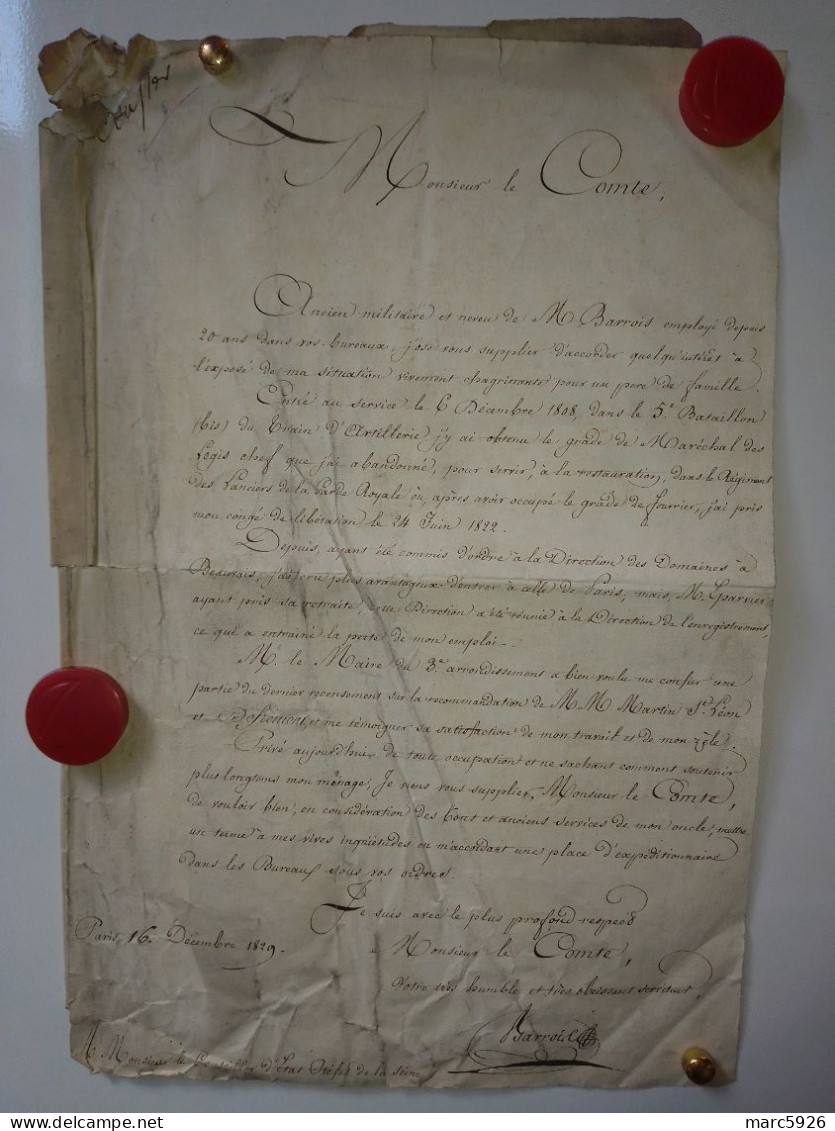 Monsieur le Comte,
Ancien militaire et neveu de M. Barrois employé depuis
20 ans dans vos bureaux, j'ose vous supplier d'accorder quelqu'intéret à
l'exposé de ma situation vivement chagrinante pour un pere de famille.
Entré au service le 6 Décembre 1808, dans le 5e Bataillon
(bis) du Train d'Artillerie j'y ai obtenu le grade de Maréchal des
Logis chef que j'ai abandonné, pour servir, à la restauration, dans le Régiment
des Lanciers de la Garde Royale où, après avoir occupé le grade de fourrier, j'ai pris
mon congé de libération le 24 Juin 1822.
Depuis, ayant été commis d'ordre à la Direction des Domaines à
Beauvais, j'ai cru plus avantageux d'entrer à celle de Paris, mais, M.
ayant pris sa retraite, Direction a été réunie à la Direction de l'enregistrement,
ce qui a entrainé la perte de mon emploi.
M. le Maire du 3e arrondissement a bien voulu me confier une
partie du dernier recensement sur la recommandation de M.M. Martin St Léon
et et me témoigner sa satisfaction de mon travail et de mon zèle.
Privé aujourd'hui de toute occupation et ne sachant comment soutenir
plus longtems mon ménage, Je viens vous supplier, Monsieur le Comte,
de vouloir bien, en considération des bons et anciens services de mon oncle, mettre
un terme à mes vives inquiétudes en m'accordant une place d'expéditionnaire
dans les Bureaux sous vos ordres.
Je suis avec le plus profond respect
Monsieur le Comte,
Paris, 16 Décembre 1829.
Votre très humble et très obéissant serviteur,
Barrois
A Monsieur le Conseiller d'Etat Préfet de la Seine
marc5926